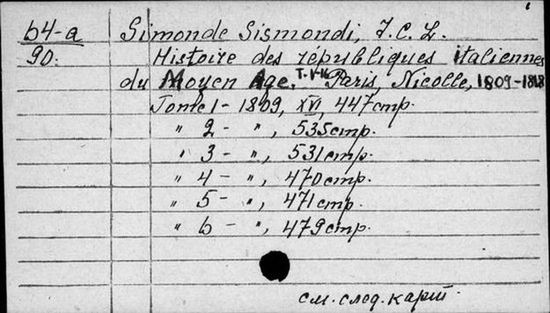 64-a Simonde Sismondi, J.C.L.
90. Histoire des républiques italiennes
du Moyen Age. T. 1-16 Paris, Nicolle, 1809-1818
Tome 1 - 1809, XVI, 447стр.
" 2 - ", 535стр.
" 3 - ", 531стр.
" 4 - ", 470стр.
" 5 - ", 471стр.
" 6 - ", 479стр.
см. след. карт.